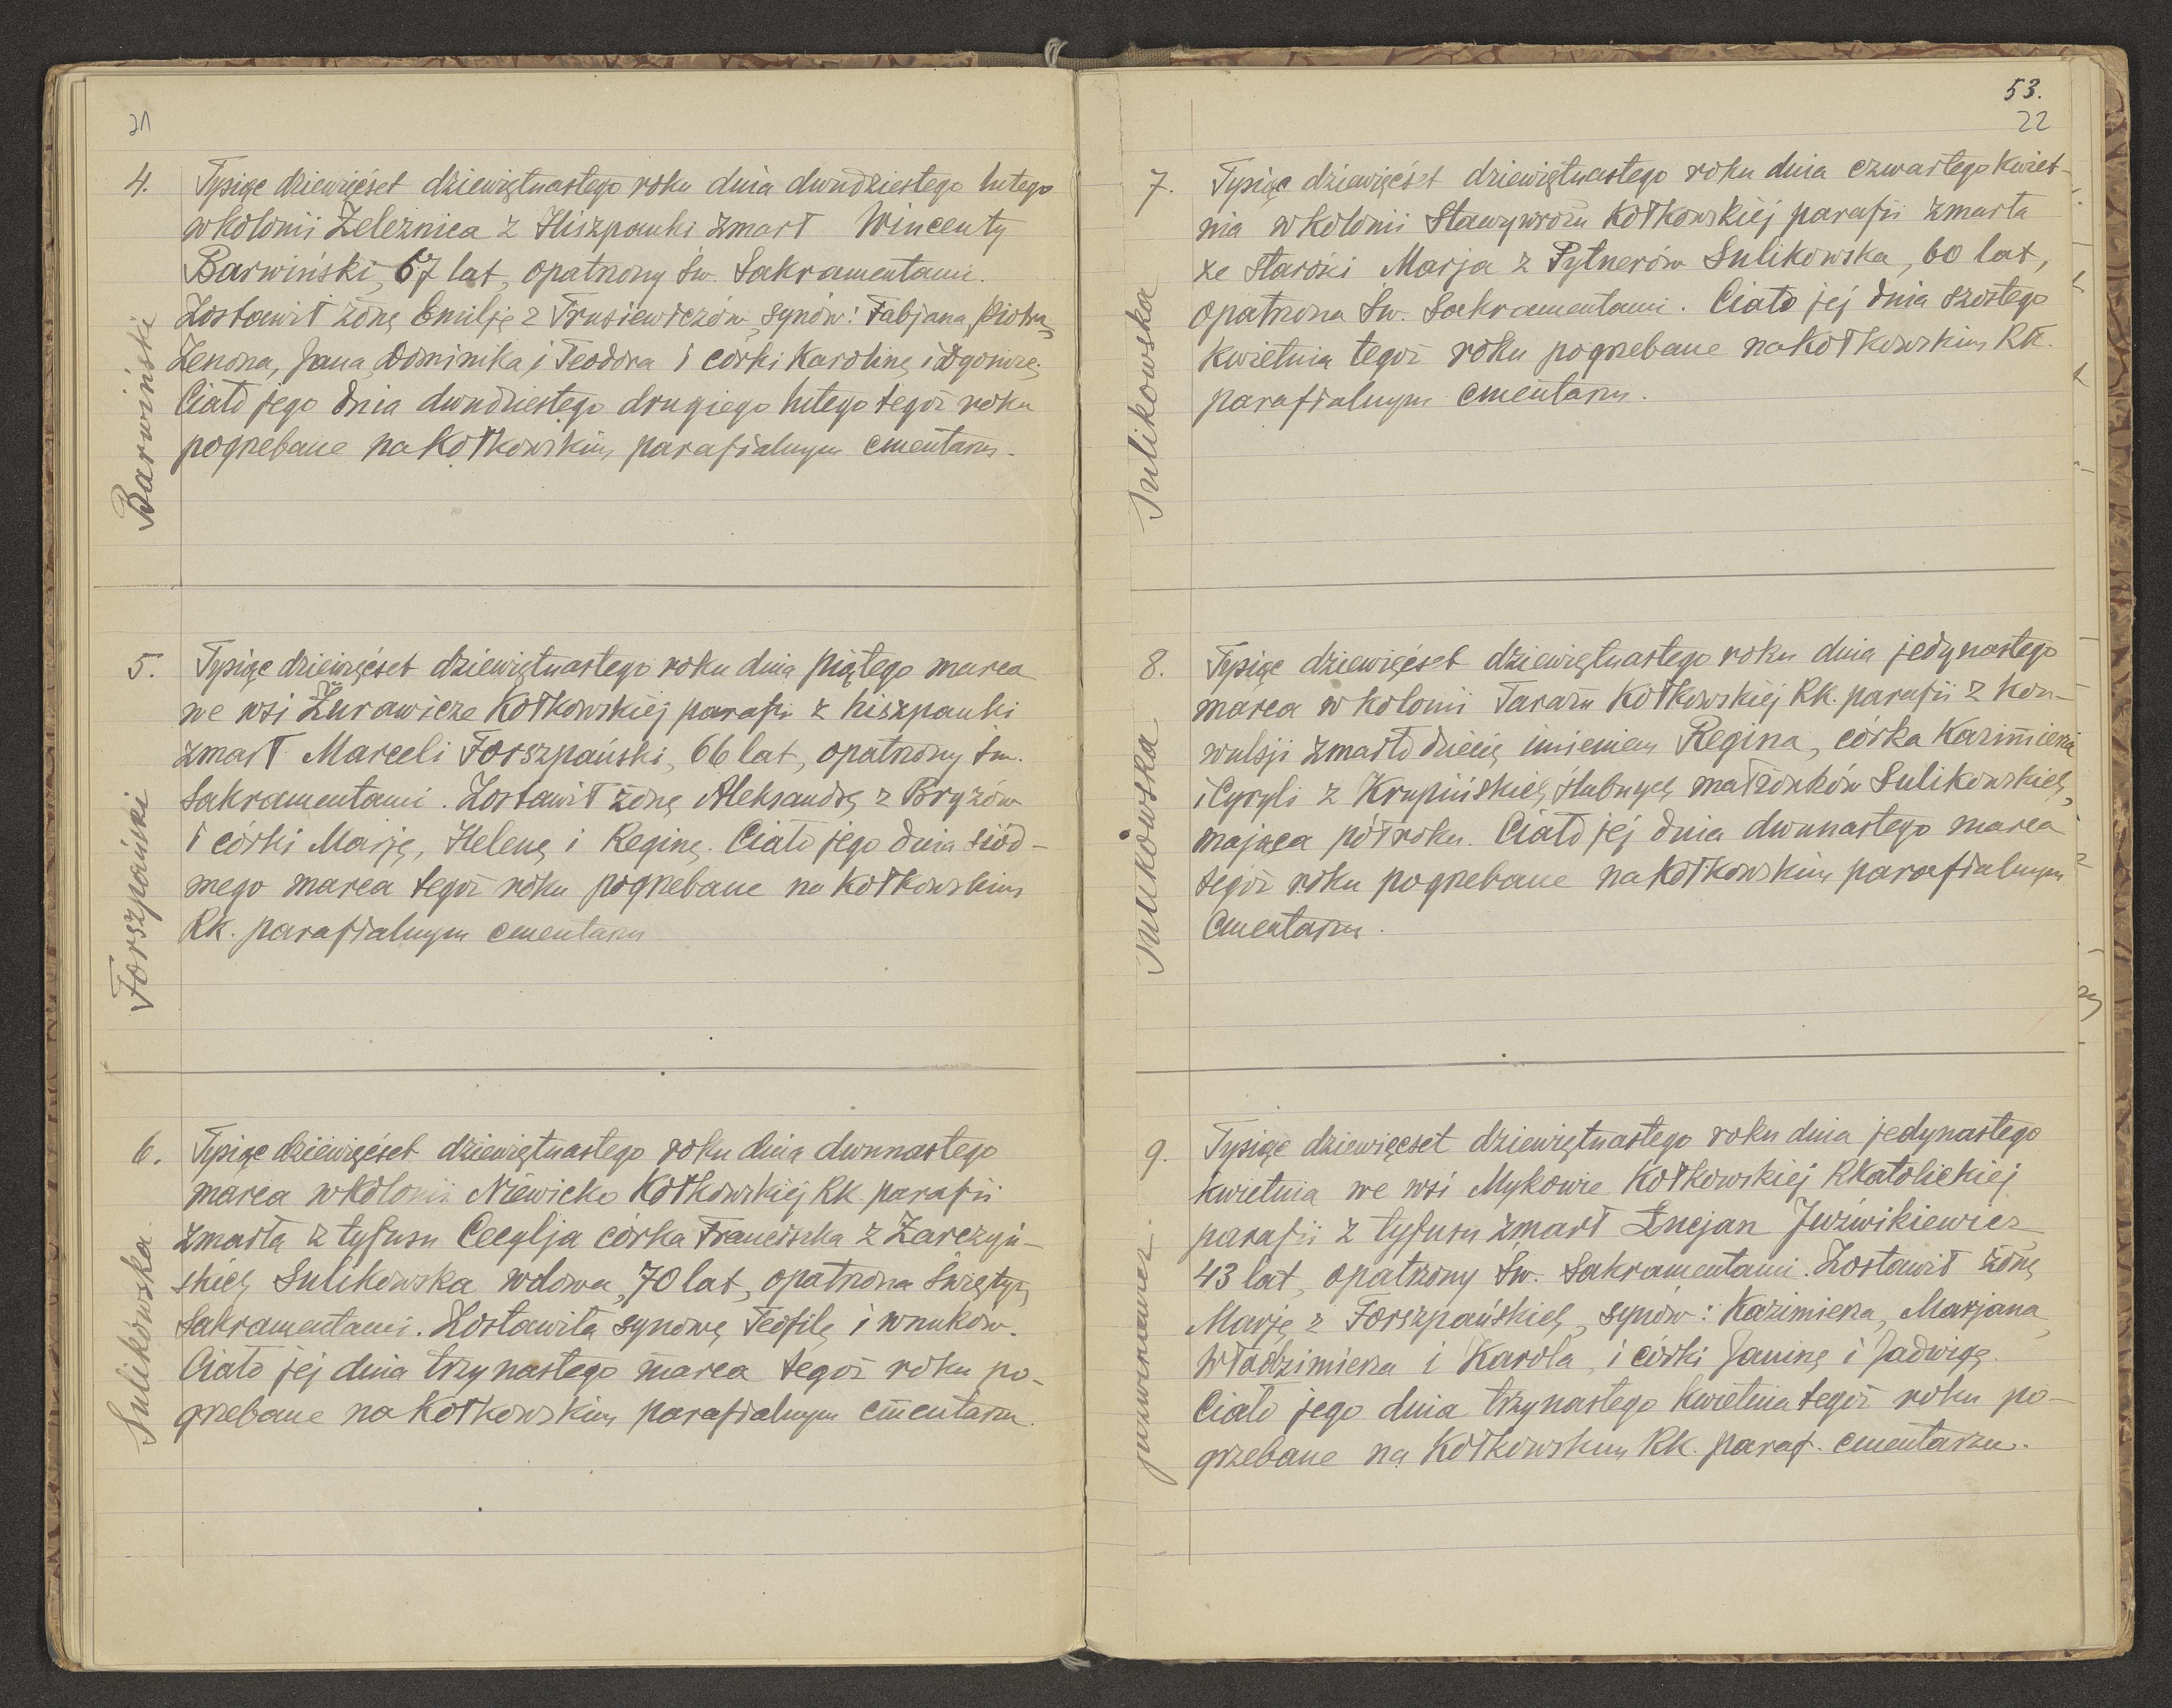 21
4. Tysiąc dziewięćset dziewiętnastego roku dnia dwudziestego lutego
w kolonii Żeleźnica z Hiszpanki zmarł Wincenty
Barwiński, 67 lat, opatrzony Św. Sakramentami.
Zostawił żonę Emilję z Trusiewiczów, synów: Fabjana, Piotra,
Zenona, Jana, Dominika i Teodora i córki Karolinę i
Ciało jego dnia dwudziestego drugiego lutego tegoż roku
pogrzebane na Kołkowskim parafialnym cmentarzu.
Barwiński
5. Tysiąc dziewięćset dziewiętnastego roku dnia piątego marca
we wsi Żurawicze Kołkowskiej parafii z hiszpanki
zmarł Marceli Forszpański, 66 lat, opatrzony św.
Sakramentami. Zostawił żonę Aleksandrę z Bryzów
i córki Marję, Helenę i Reginę. Ciało jego dnia siód-
mego marca tegoż roku pogrzebane na Kołkowskim
RK. parafialnym cmentarzu
Forszpański
6. Tysiąc dziewięćset dziewiętnastego roku dnia dwunastego
marca w kolonii Niewicko Kołkowskiej RK parafii
zmarła z tyfusu Cecylja córka Franciszka z Zarczyń-
skich Sulikowska wdowa, 70 lat, opatrzona Świętym
Sakramentami. Zostawiła synowę Teofilę i wnuków.
Ciało jej dnia trzynastego marca tegoż roku po-
grzebane na Kołkowskim parafialnym cmentarzu.
Sulikowska
53.
22
7. Tysiąc dziewięćset dziewiętnastego roku dnia czwartego kwiet-
nia w kolonii Kołkowskiej parafii zmarła
ze starości Marja z Pytnerów Sulikowska, 60 lat,
opatrzona Św. Sakramentami. Ciało jej dnia szóstego
kwietnia tegoż roku pogrzebane na Kołkowskim RK.
parafialnym cmentarzu.
Sulikowska
8. Tysiąc dziewięćset dziewiętnastego roku dnia jedynastego
marca w kolonii Taraż Kołkowskiej RK. parafii z kon-
wulsji zmarło dziecię imieniem Regina, córka Kazimierza
i Cyryli z Krupińskich ślubnych małżonków Sulikowskich,
mająca półroku. Ciało jej dnia dwunastego marca
tegoż roku pogrzebane na Kołkowskim parafialnym
cmentarzu.
Sulikowska
9. Tysiąc dziewięćset dziewiętnastego roku dnia jedynastego
kwietnia we wsi Mykowie Kołkowskiej RKatolickiej
parafii z tyfusu zmarł Łucjan Juźwikiewicz
43 lat, opatrzony Św. Sakramentami. Zostawił żonę
Marję z Forszpańskich, synów: Kazimierza, Marjana,
Włodzimierza i Karola, i córki Janinę i Jadwigę.
Ciało jego dnia trzynastego kwietnia tegoż roku po-
grzebane na Kołkowskim RK. paraf. cmentarzu.